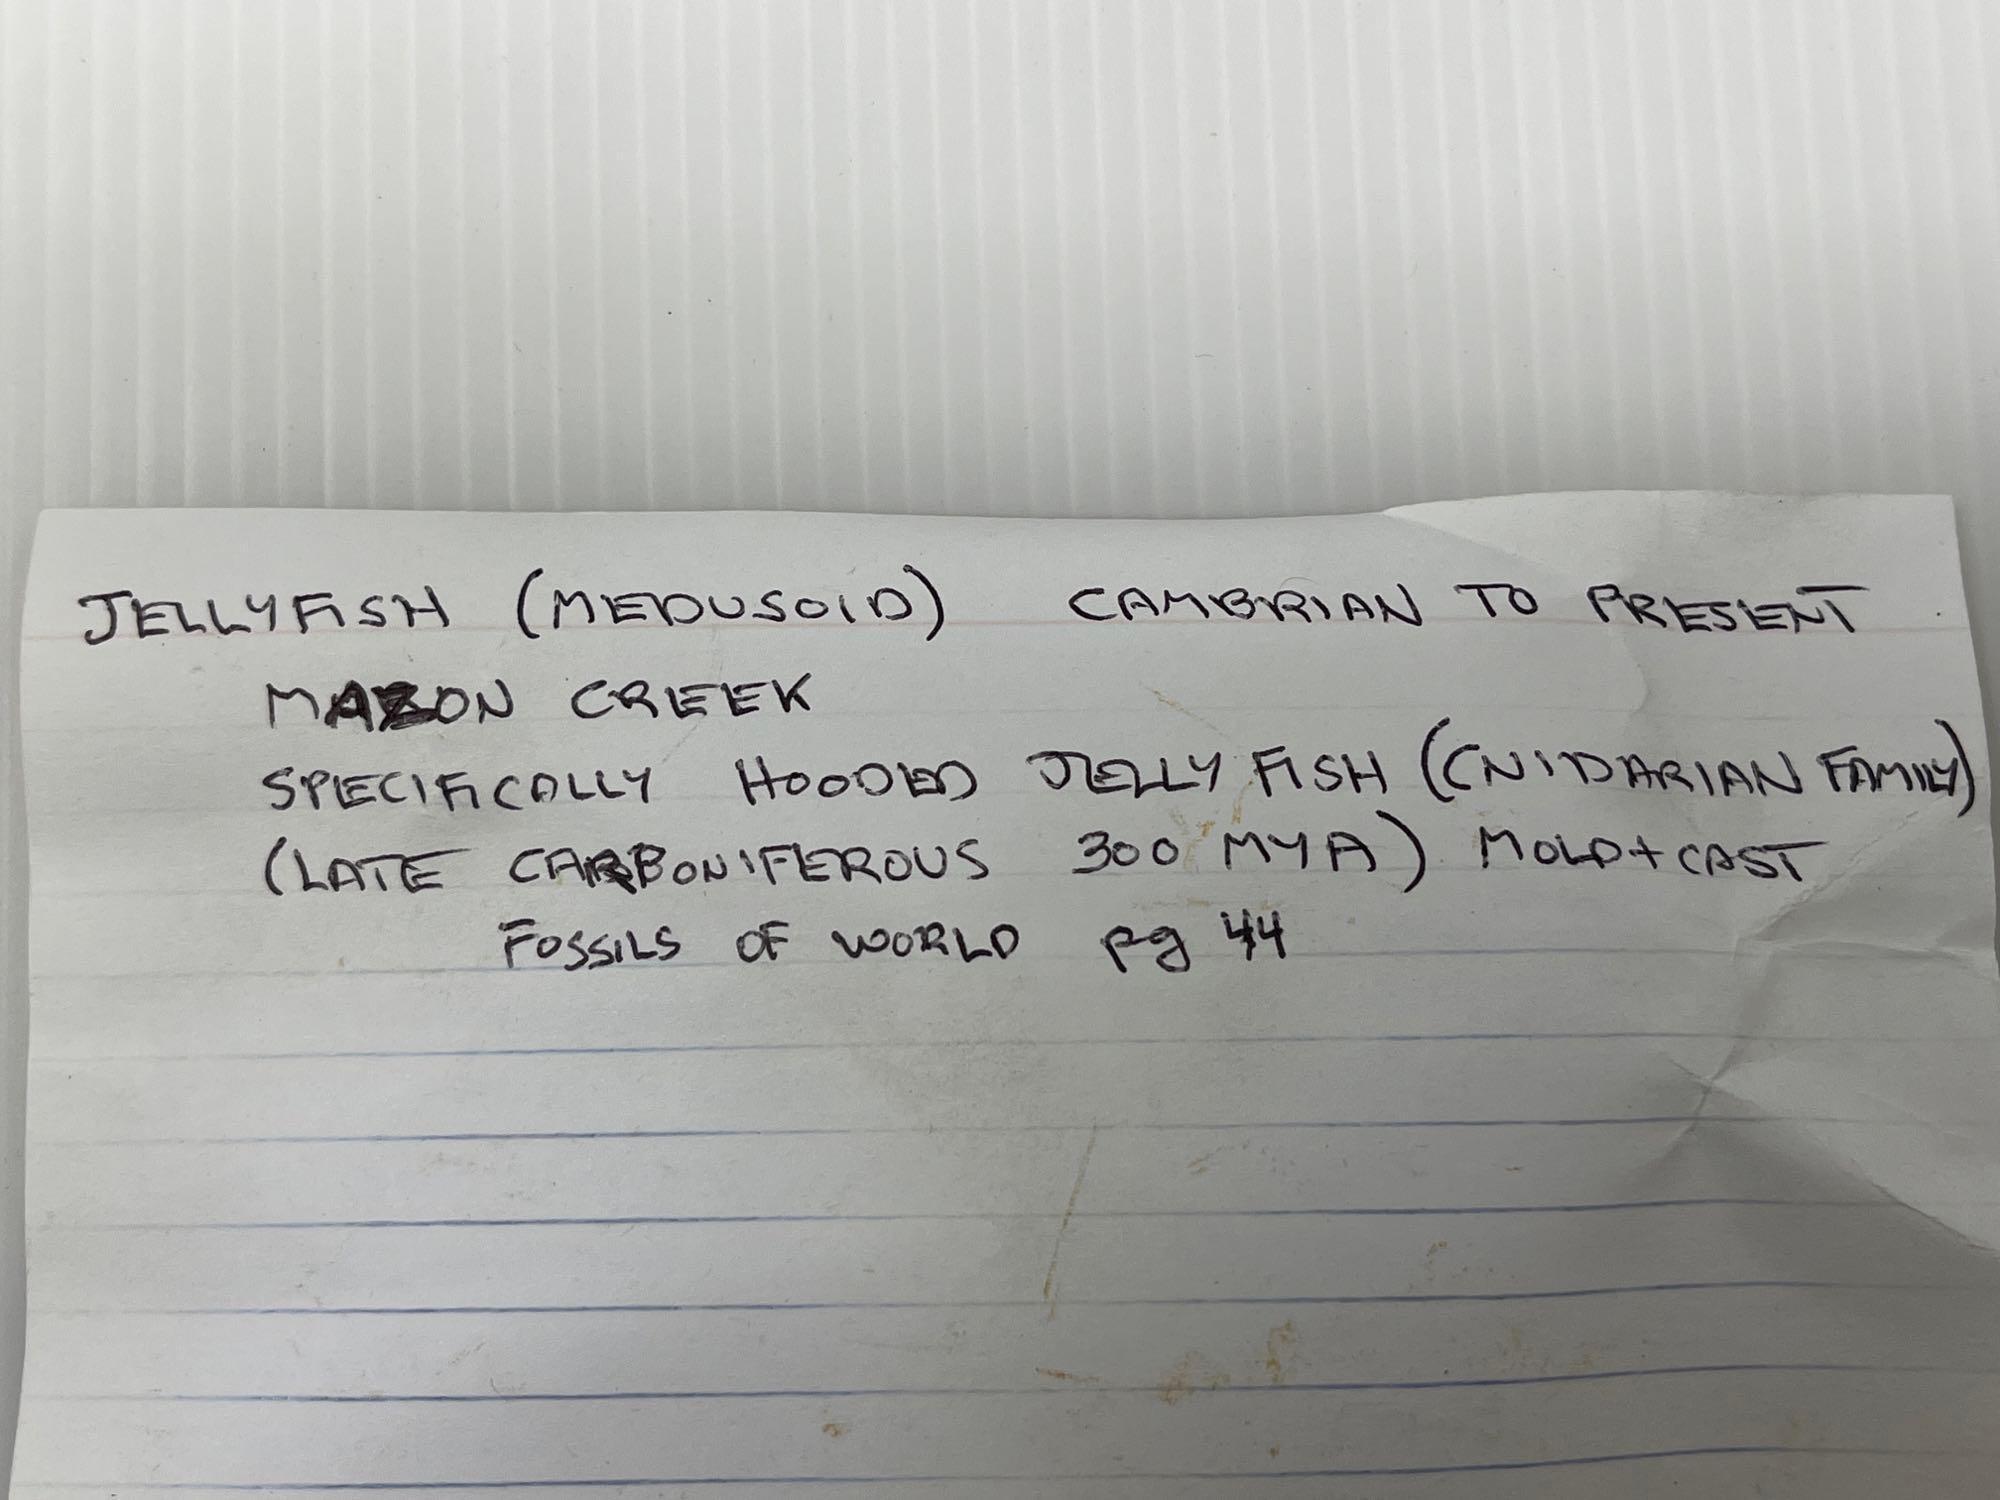 JELLYFISH (MEDUSOID) CAMBRIAN TO PRESENT
MAZON CREEK
SPECIFICALLY HOODED JELLY FISH (CNIDARIAN FAMILY)
(LATE CARBONIFEROUS 300 MYA) MOLD + CAST
FOSSILS OF WORLD pg 44